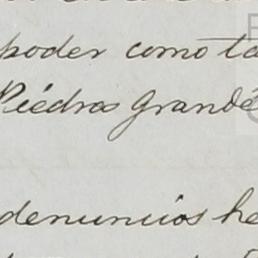 poder como ta
Piédras Grandé
denuncios he